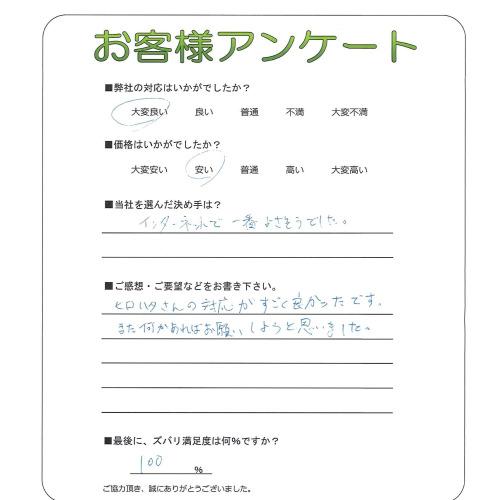 お客様アンケート
■弊社の対応はいかがでしたか？
大変良い 良い 普通 不満 大変不満
■価格はいかがでしたか？
大変安い 安い 普通 高い 大変高い
■当社を選んだ決め手は？
インターネットで 一番よさそうでした。
■ご感想・ご要望などをお書き下さい。
ヒロハタさんの対応がすごく良かったです。
また何かあればお願いしようと思いました。
■最後に、ズバリ満足度は何%ですか？
100 %
ご協力頂き、誠にありがとうございました。